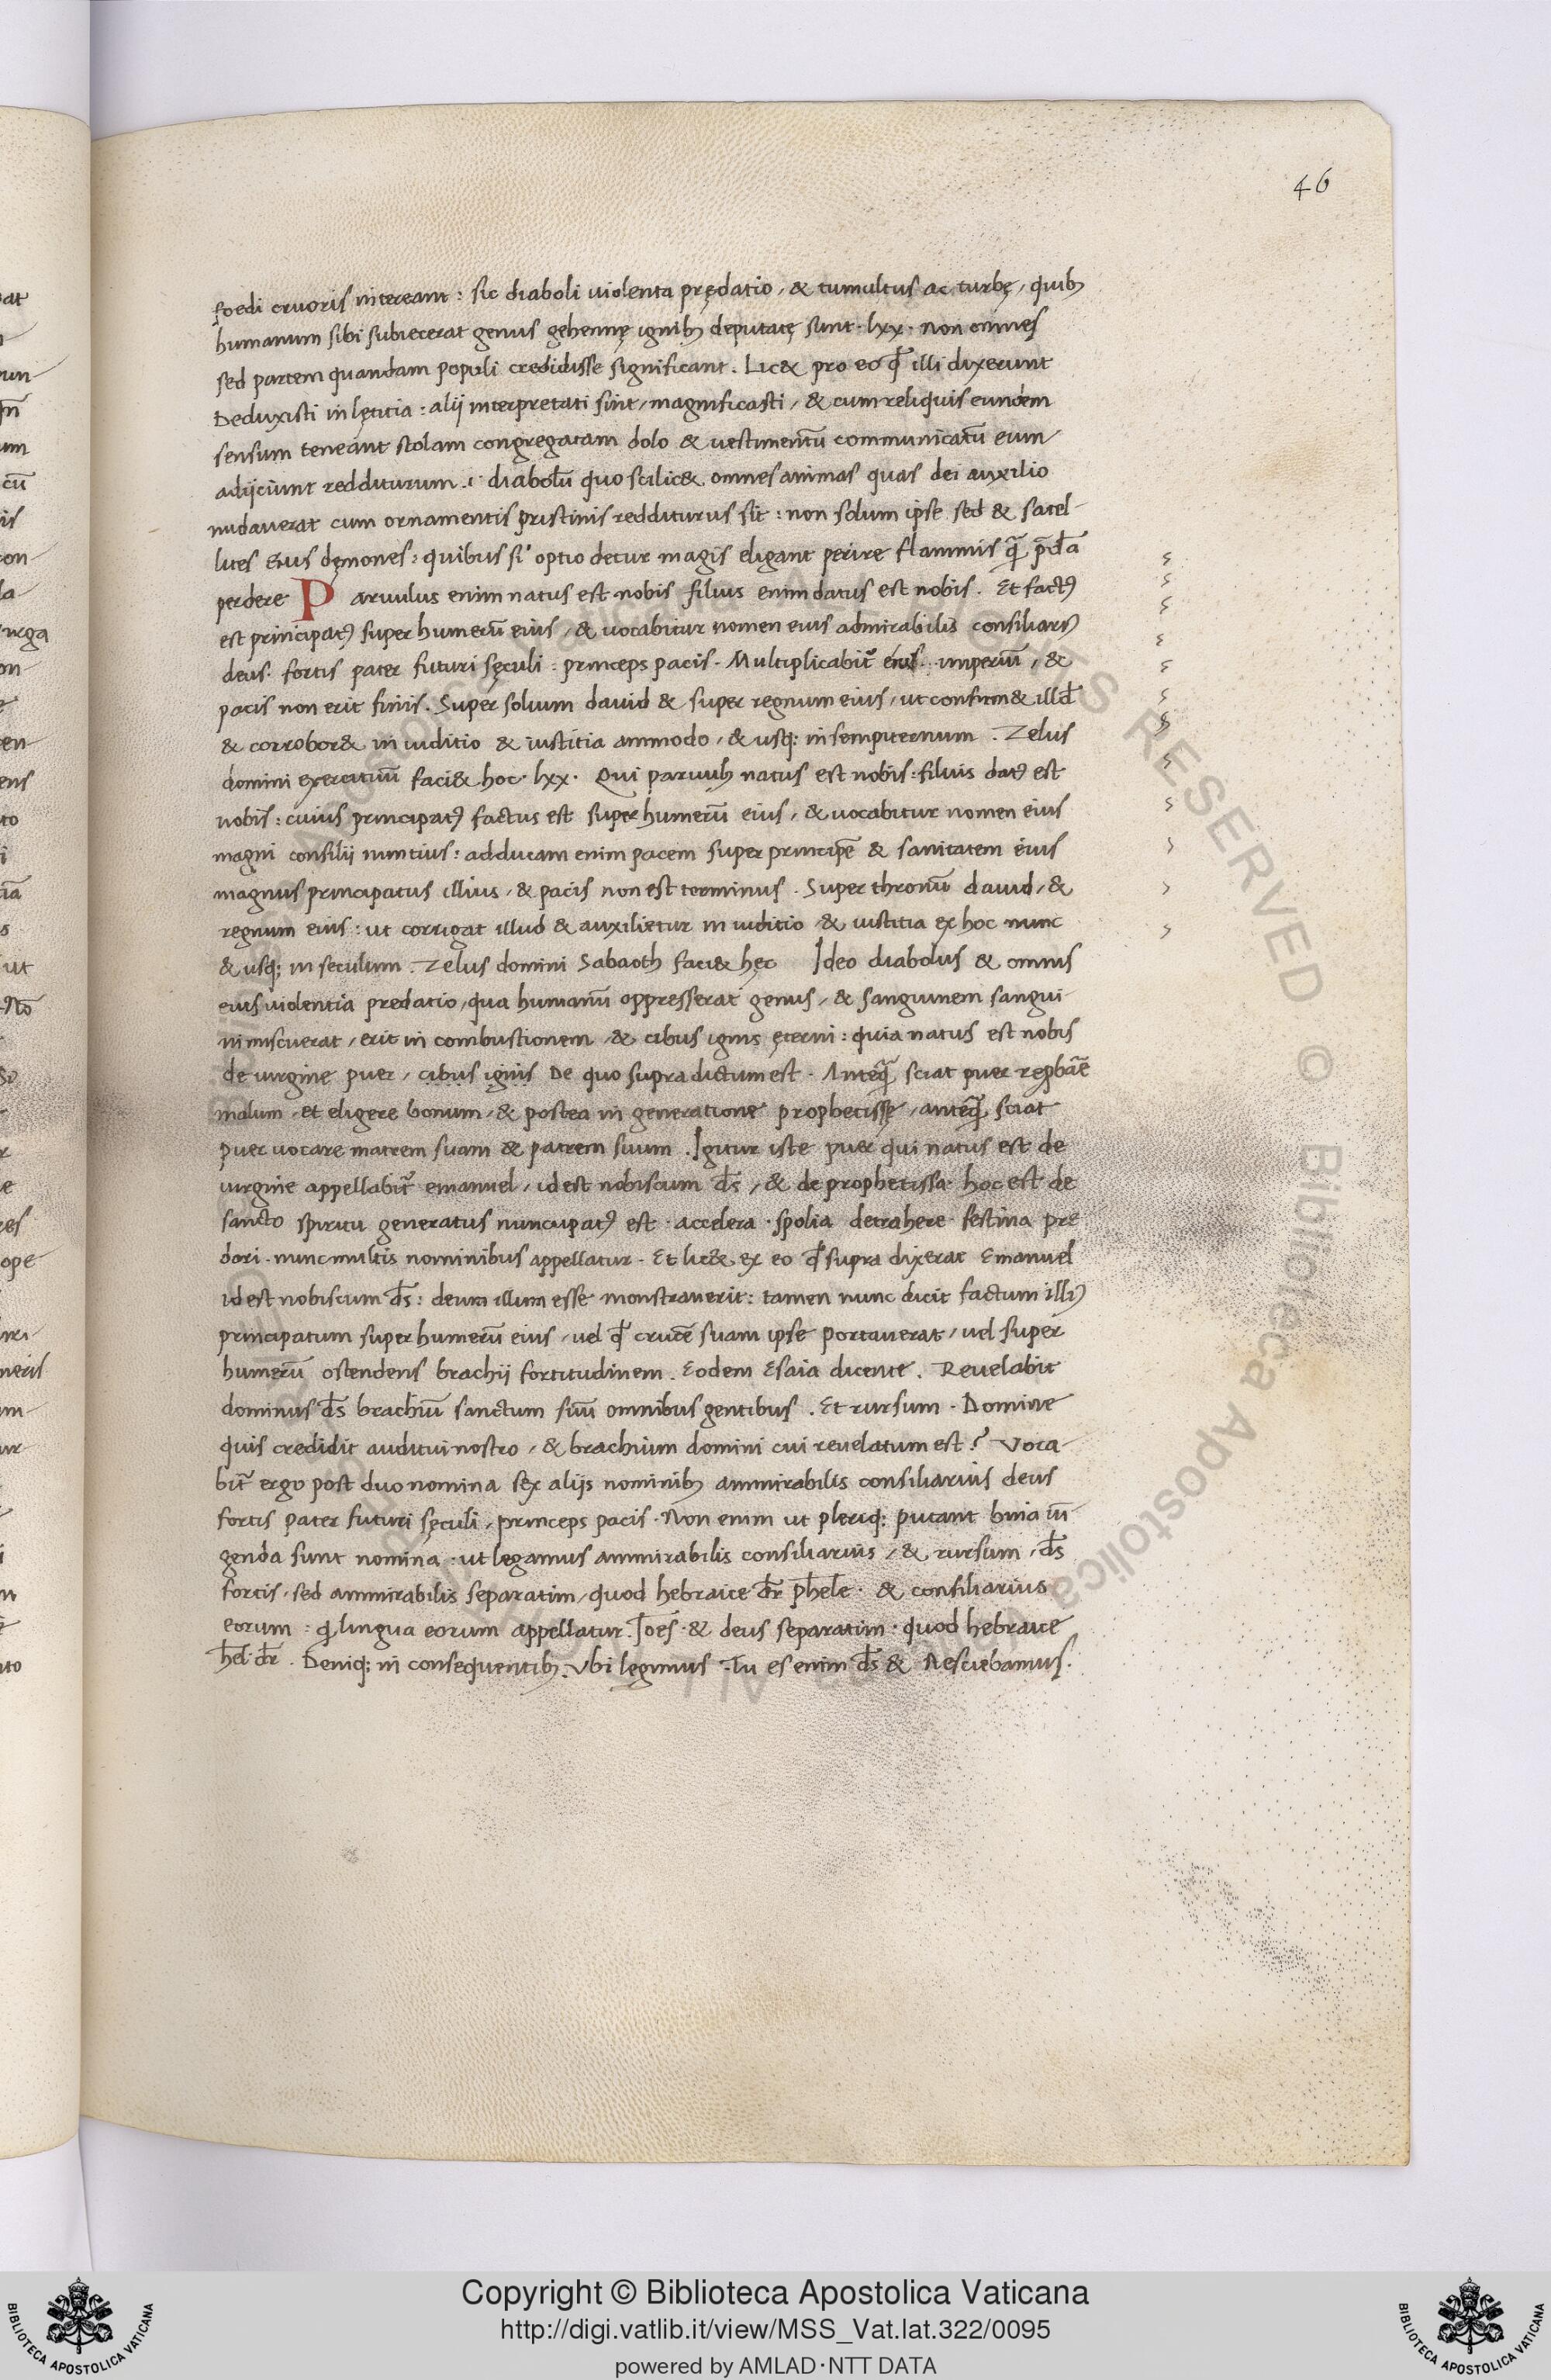 46
foedi cruoris intereant: sic diaboli uiolenta prędatio, & tumultus ac turbę, quibꝫ
humanum sibi subiecerat genus gehennę ignibꝫ deputatę sunt. lxx. non omnes
sed partem quandam populi credidisse significant. Lic& pro eo qđ illi dixerunt
Deduxisti in lętitia: alij interpretati sint, magnificasti, & cum reliquis eundem
sensum teneant stolam congregatam dolo & uestimentū communicatū eum
adijciunt redditurum .i. diabolū quo scilic& omnes animas quas dei auxilio
nudauerat cum ornamentis pristinis redditurus sit: non solum ipse sed & satel-
lites eius dęmones: quibus si optio detur magis eligant perire flammis
perdere Paruulus enim natus est nobis filius enim datus est nobis. Et factꝰ
est principatꝰ super humerū eius, & uocabitur nomen eius admirabilis consiliariꝰ
deus. fortis pater futuri sęculi: princeps pacis. Multiplicabit᷑ eius imperiū, &
pacis non erit finis. Super solium dauid & super regnum eius, ut confirm& illđ
& corrobor& in iuditio & iustitia ammodo, & usqꝫ in sempiternum. Zelus
domini exercituū faci& hoc. lxx. Qui paruulꝫ natus est nobis: filius datꝰ est
nobis: cuius principatꝰ factus est super humerū eius, & uocabitur nomen eius
magni consilij nuntius: adducam enim pacem super principē & sanitatem eius
magnus principatus illius, & pacis non est terminus. Super thronū dauid, &
regnum eius: ut corrigat illud & auxilietur in iuditio & iustitia ex hoc nunc
& usqꝫ in seculum. Zelus domini Sabaoth faci& hęc Ideo diabolus & omnis
eius uiolentia predatio, qua humanū oppresserat genus, & sanguinem sangui-
ni miscuerat, erit in combustionem & cibus ignis ęterni: quia natus est nobis
de uirgine puer, cibus ignis De quo supra dictum est. Anteq̄ sciat puer
malum, et eligere bonum, & postea in generatione prophetissę, anteq̄ sciat
puer uocare matrem suam & patrem suum. Igitur iste puer qui natus est de
uirgine appellabit᷑ emanuel, id est nobiscum d̄s, & de prophetissa hoc est de
sancto spiritu generatus nuncupatꝰ est. accelera. spolia detrahere festina pre
dari. nunc multis nominibus appellatur. Et lic& ex eo qđ supra dixerat Emanuel
id est nobiscum d̄s: deum illum esse monstrauerit: tamen nunc dicit factum illiꝰ
principatum super humerū eius, uel qđ crucē suam ipse portauerat, uel super
humerū ostendens brachij fortitudinem. Eodem Esaia dicente. Reuelabit
dominus d̄s brachiū sanctum suū omnibus gentibus. Et rursum. Domine
quis credidit auditui nostro, & brachium domini cui reuelatum est? Voca-
bit᷑ ergo post duo nomina sex alijs nominibꝫ ammirabilis consiliarius deus
fortis pater futuri sęculi, princeps pacis. Non enim ut pleriqꝫ putant bina iū
genda sunt nomina: ut legamus ammirabilis consiliarius, & rursum, d̄s
fortis, sed ammirabilis separatim, quod hebraice dr̄ phele. & consiliarius
eorum: q̨ lingua eorum appellatur. Ioes. & deus separatim. quod hebraice
hel. dr̄. Deniqꝫ in consequentibꝫ. Vbi legimus Tu es enim d̄s & Nesciebamus.
Copyright © Biblioteca Apostolica Vaticana
http://digi.vatlib.it/view/MSS_Vat.lat.322/0095
powered by AMLAD·NTT DATA